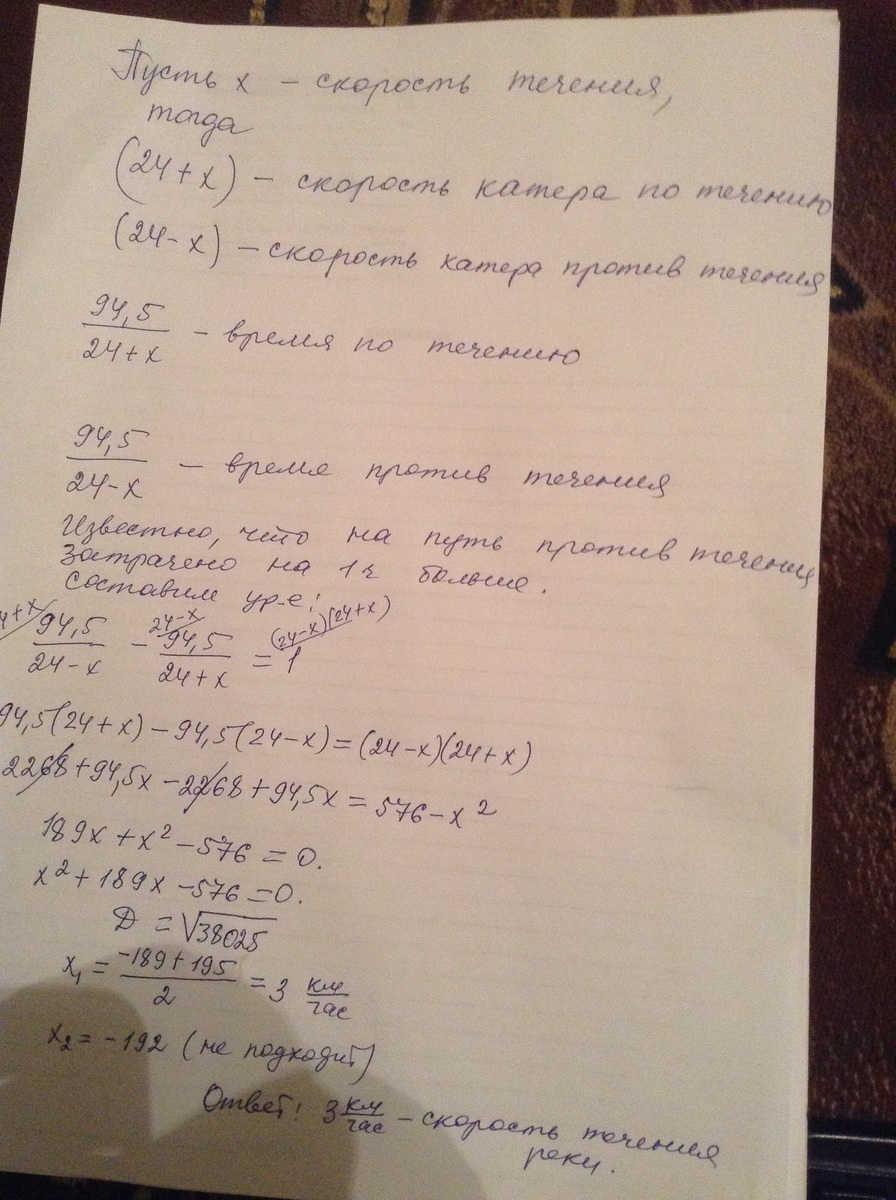 Пусть x – скорость течения,
тогда
(24+x) – скорость катера по течению
(24-x) – скорость катера против течения
94,5/24+x – время по течению
94,5/24-x – время против течения
Известно, что на путь против течения
затрачено на 1ч больше.
Составим ур-е:
4+x 24-x (24-x)(24+x)
94,5/24-x - 94,5/24+x = 1
94,5(24+x)-94,5(24-x)=(24-x)(24+x)
2268+94,5x-2268+94,5x=576-x²
189x+x²-576=0.
x²+189x-576=0.
Д = √38025
x₁ = -189+195/2 = 3 км/час
x₂ = -192 (не подходит)
Ответ: 3 км/час – скорость течения
реки.